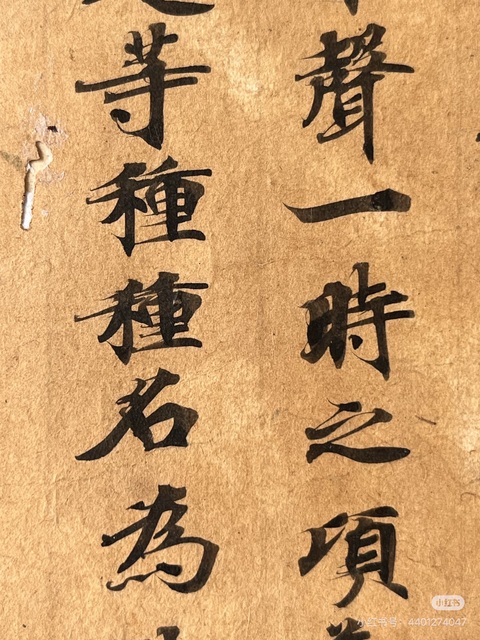 聲一時之項
等種種名為
小红书
小红书号：4401274047